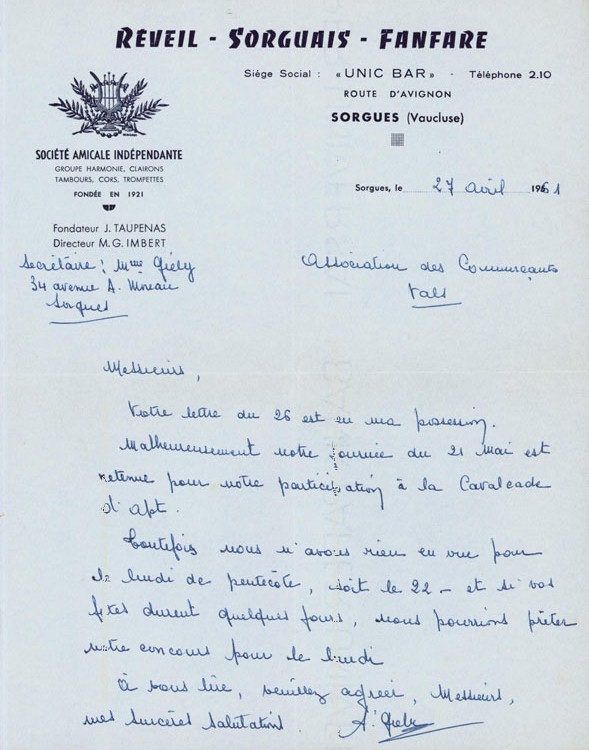 RÉVEIL - SORGUAIS - FANFARE
Siège Social : « UNIC BAR » - Téléphone 2.10
ROUTE D'AVIGNON
SORGUES (Vaucluse)
SOCIÉTÉ AMICALE INDÉPENDANTE
GROUPE HARMONIE, CLAIRONS
TAMBOURS, CORS, TROMPETTES
FONDÉE EN 1921
Sorgues, le 27 avril 1961
Fondateur J. TAUPENAS
Directeur M. G. IMBERT
Secrétaire : Mme Giély
34 avenue A. Moreau
Sorgues
Association des Commerçants
Vals
Messieurs,
Votre lettre du 26 est en ma possession.
Malheureusement notre journée du 21 Mai est
retenue pour notre participation à la Cavalcade
d'Apt.
Toutefois nous n'avons rien en vue pour
le lundi de pentecôte, soit le 22 - et si vos
fêtes durent quelques jours, nous pourrions prêter
notre concours pour le lundi
À vous lire, veuillez agréer, Messieurs,
mes sincères salutations. A. Giély